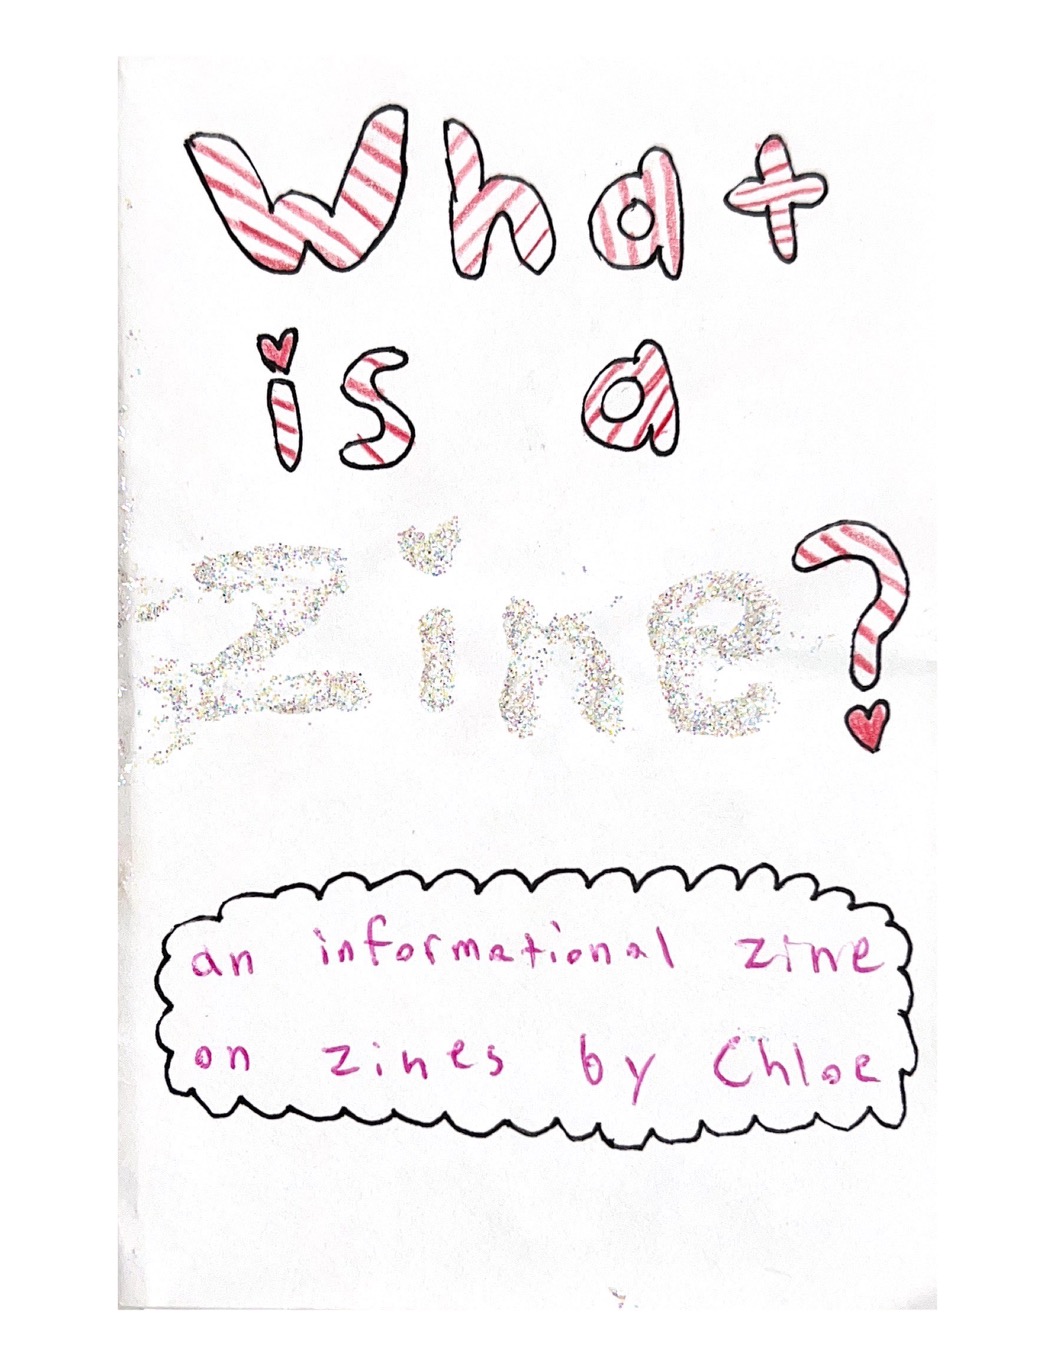 What
is a
Zine?
an informational zine
on zines by Chloe